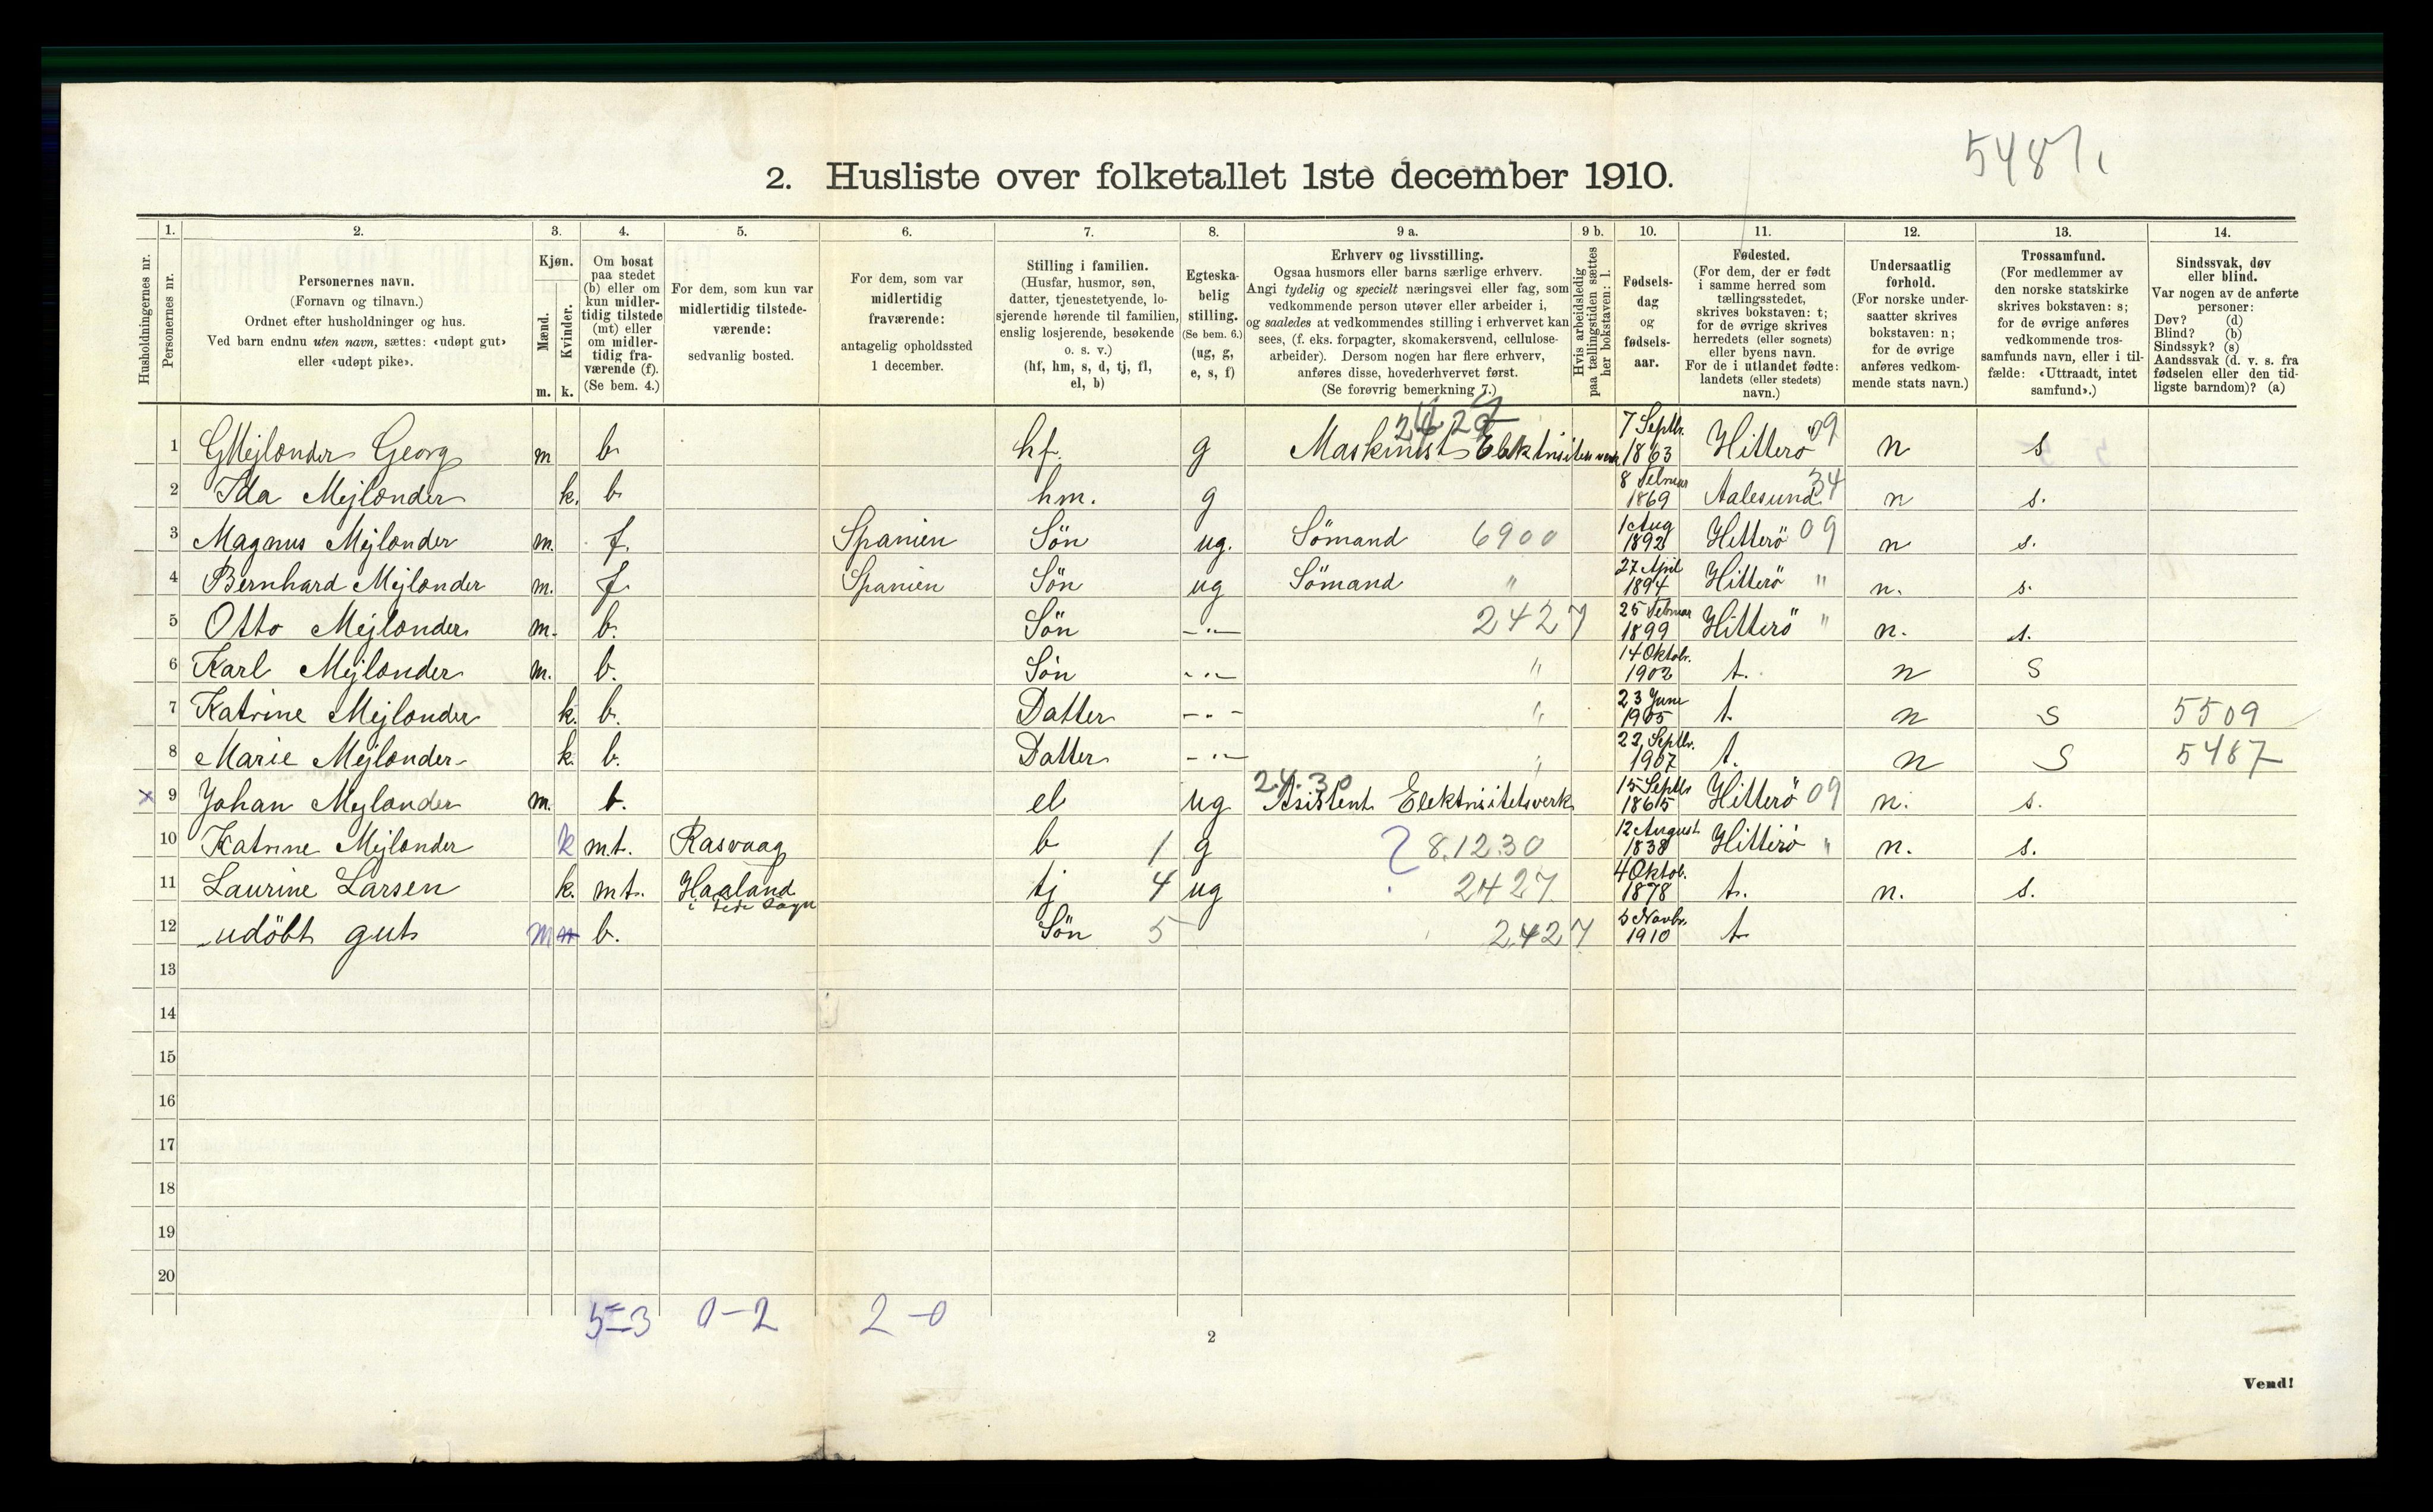 5487.
2. Husliste over folketallet 1ste december 1910.
Husholdningernes nr.
1.
Personernes nr.
2.
Personernes navn.
(Fornavn og tilnavn.)
Ordnet efter husholdninger og hus.
Ved barn endnu uten navn, sættes: «udøpt gut»
eller «udøpt pike».
3.
Kjøn.
Mænd.
Kvinder.
m. k.
4.
Om bosat
paa stedet
(b) eller om
kun midler-
tidig tilstede
(mt) eller
om midler-
tidig fra-
værende (f).
(Se bem. 4.)
5.
For dem, som kun var
midlertidig tilstede-
værende:
sedvanlig bosted.
6.
For dem, som var
midlertidig
fraværende:
antagelig opholdssted
1 december.
7.
Stilling i familien.
(Husfar, husmor, søn,
datter, tjenestetyende, lo-
sjerende hørende til familien,
enslig losjerende, besøkende
o. s. v.)
(hf, hm, s, d, tj, fl,
el, b)
8.
Egteska-
belig
stilling.
(Se bem. 6.)
(ug, g,
e, s, f)
9 a.
Erhverv og livsstilling.
Ogsaa husmors eller barns særlige erhverv.
Angi tydelig og specielt næringsvei eller fag, som
vedkommende person utøver eller arbeider i,
og saaledes at vedkommendes stilling i erhvervet kan
sees, (f. eks. forpagter, skomakersvend, cellulose-
arbeider). Dersom nogen har flere erhverv,
anføres disse, hovederhvervet først.
(Se forøvrig bemerkning 7.)
9 b.
Hvis arbeidsledig
paa tællingstiden sættes
her bokstaven: l.
10.
Fødsels-
dag
og
fødsels-
aar.
11.
Fødested.
(For dem, der er født
i samme herred som
tællingsstedet,
skrives bokstaven: t;
for de øvrige skrives
herredets (eller sognets)
eller byens navn.
For de i utlandet fødte:
landets (eller stedets)
navn.)
12.
Undersaatlig
forhold.
(For norske under-
saatter skrives
bokstaven: n;
for de øvrige
anføres vedkom-
mende stats navn.)
13.
Trossamfund.
(For medlemmer av
den norske statskirke
skrives bokstaven: s;
for de øvrige anføres
vedkommende tros-
samfunds navn, eller i til-
fælde: «Uttraadt, intet
samfund».)
14.
Sindssvak, døv
eller blind.
Var nogen av de anførte
personer:
Døv? (d)
Blind? (b)
Sindssyk? (s)
Aandssvak (d. v. s. fra
fødselen eller den tid-
ligste barndom)? (a)
1 GMejlænder Georg m b hf. g Maskinist Elektrisitetsverk 7 Septbr. 1863 Hitterö 09 n s
2 Ida Mejlænder k. b hm. g 8 Februar 1869 Aalesund 34 n s.
3 Magnus Mejlænder m. f. Spanien Sön ug. Sömand 6900 1 Aug 1892 Hitterö 09 n s.
4 Bernhard Mejlænder m. f Spanien Sön ug Sömand " 27 April 1894 Hitterö " n. s.
5 Otto Mejlænder m. b. Sön -"- 2427 25 Februar 1899 Hitterö " n. s.
6 Karl Mejlænder m. b. Sön -"- " 14 Oktobr. 1902 t. n s
7 Katrine Mejlænder k. b. Datter -"- " 23 Juni 1905 t. n s 5509
8 Marie Mejlænder k. b. Datter -"- " 22 Septbr. 1907 t. n s 5487
x 9 Johan Mejlænder m. b. el ug 24.30 Asistent Elektrisitetsverk 15 Septbr 1865 Hitterö 09 n. s.
10 Katrine Mejlænder k mt. Rasvaag b 1 g ? 8.12.30 12 August 1838 Hitterö " n. s.
11 Laurine Larsen k. mt. Haaland i dete Sogn tj 4 ug 2427 4 Oktob. 1878 t. n. s.
12 udöbt gut m b. Sön 5 2427 5 Novbr. 1910 t
13
14
15
16
17
18
19
20
5-3 0-2 2-0
2
Vend!